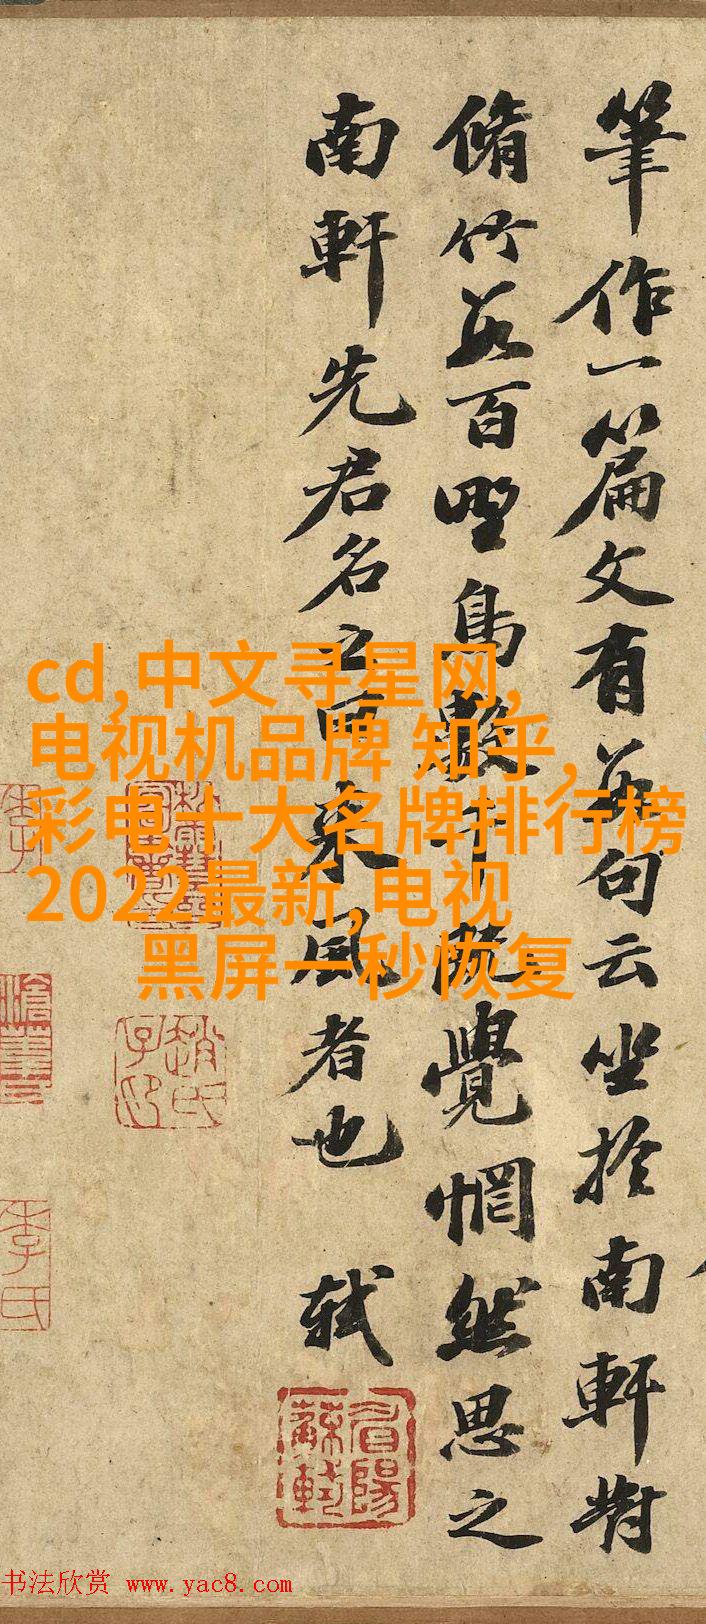 筆作一篇文有數句云坐於南軒對
脩竹數百野鳥數千既覺惘然思之
南軒先君名之曰來風者也 軾
眉陽蘇軾
趙氏子印
李氏
cd,中文寻星网,
电视机品牌 知乎,
彩电十大名牌排行榜
2022最新,电视
黑屏一秒恢复
书法欣赏 www.yac8.com